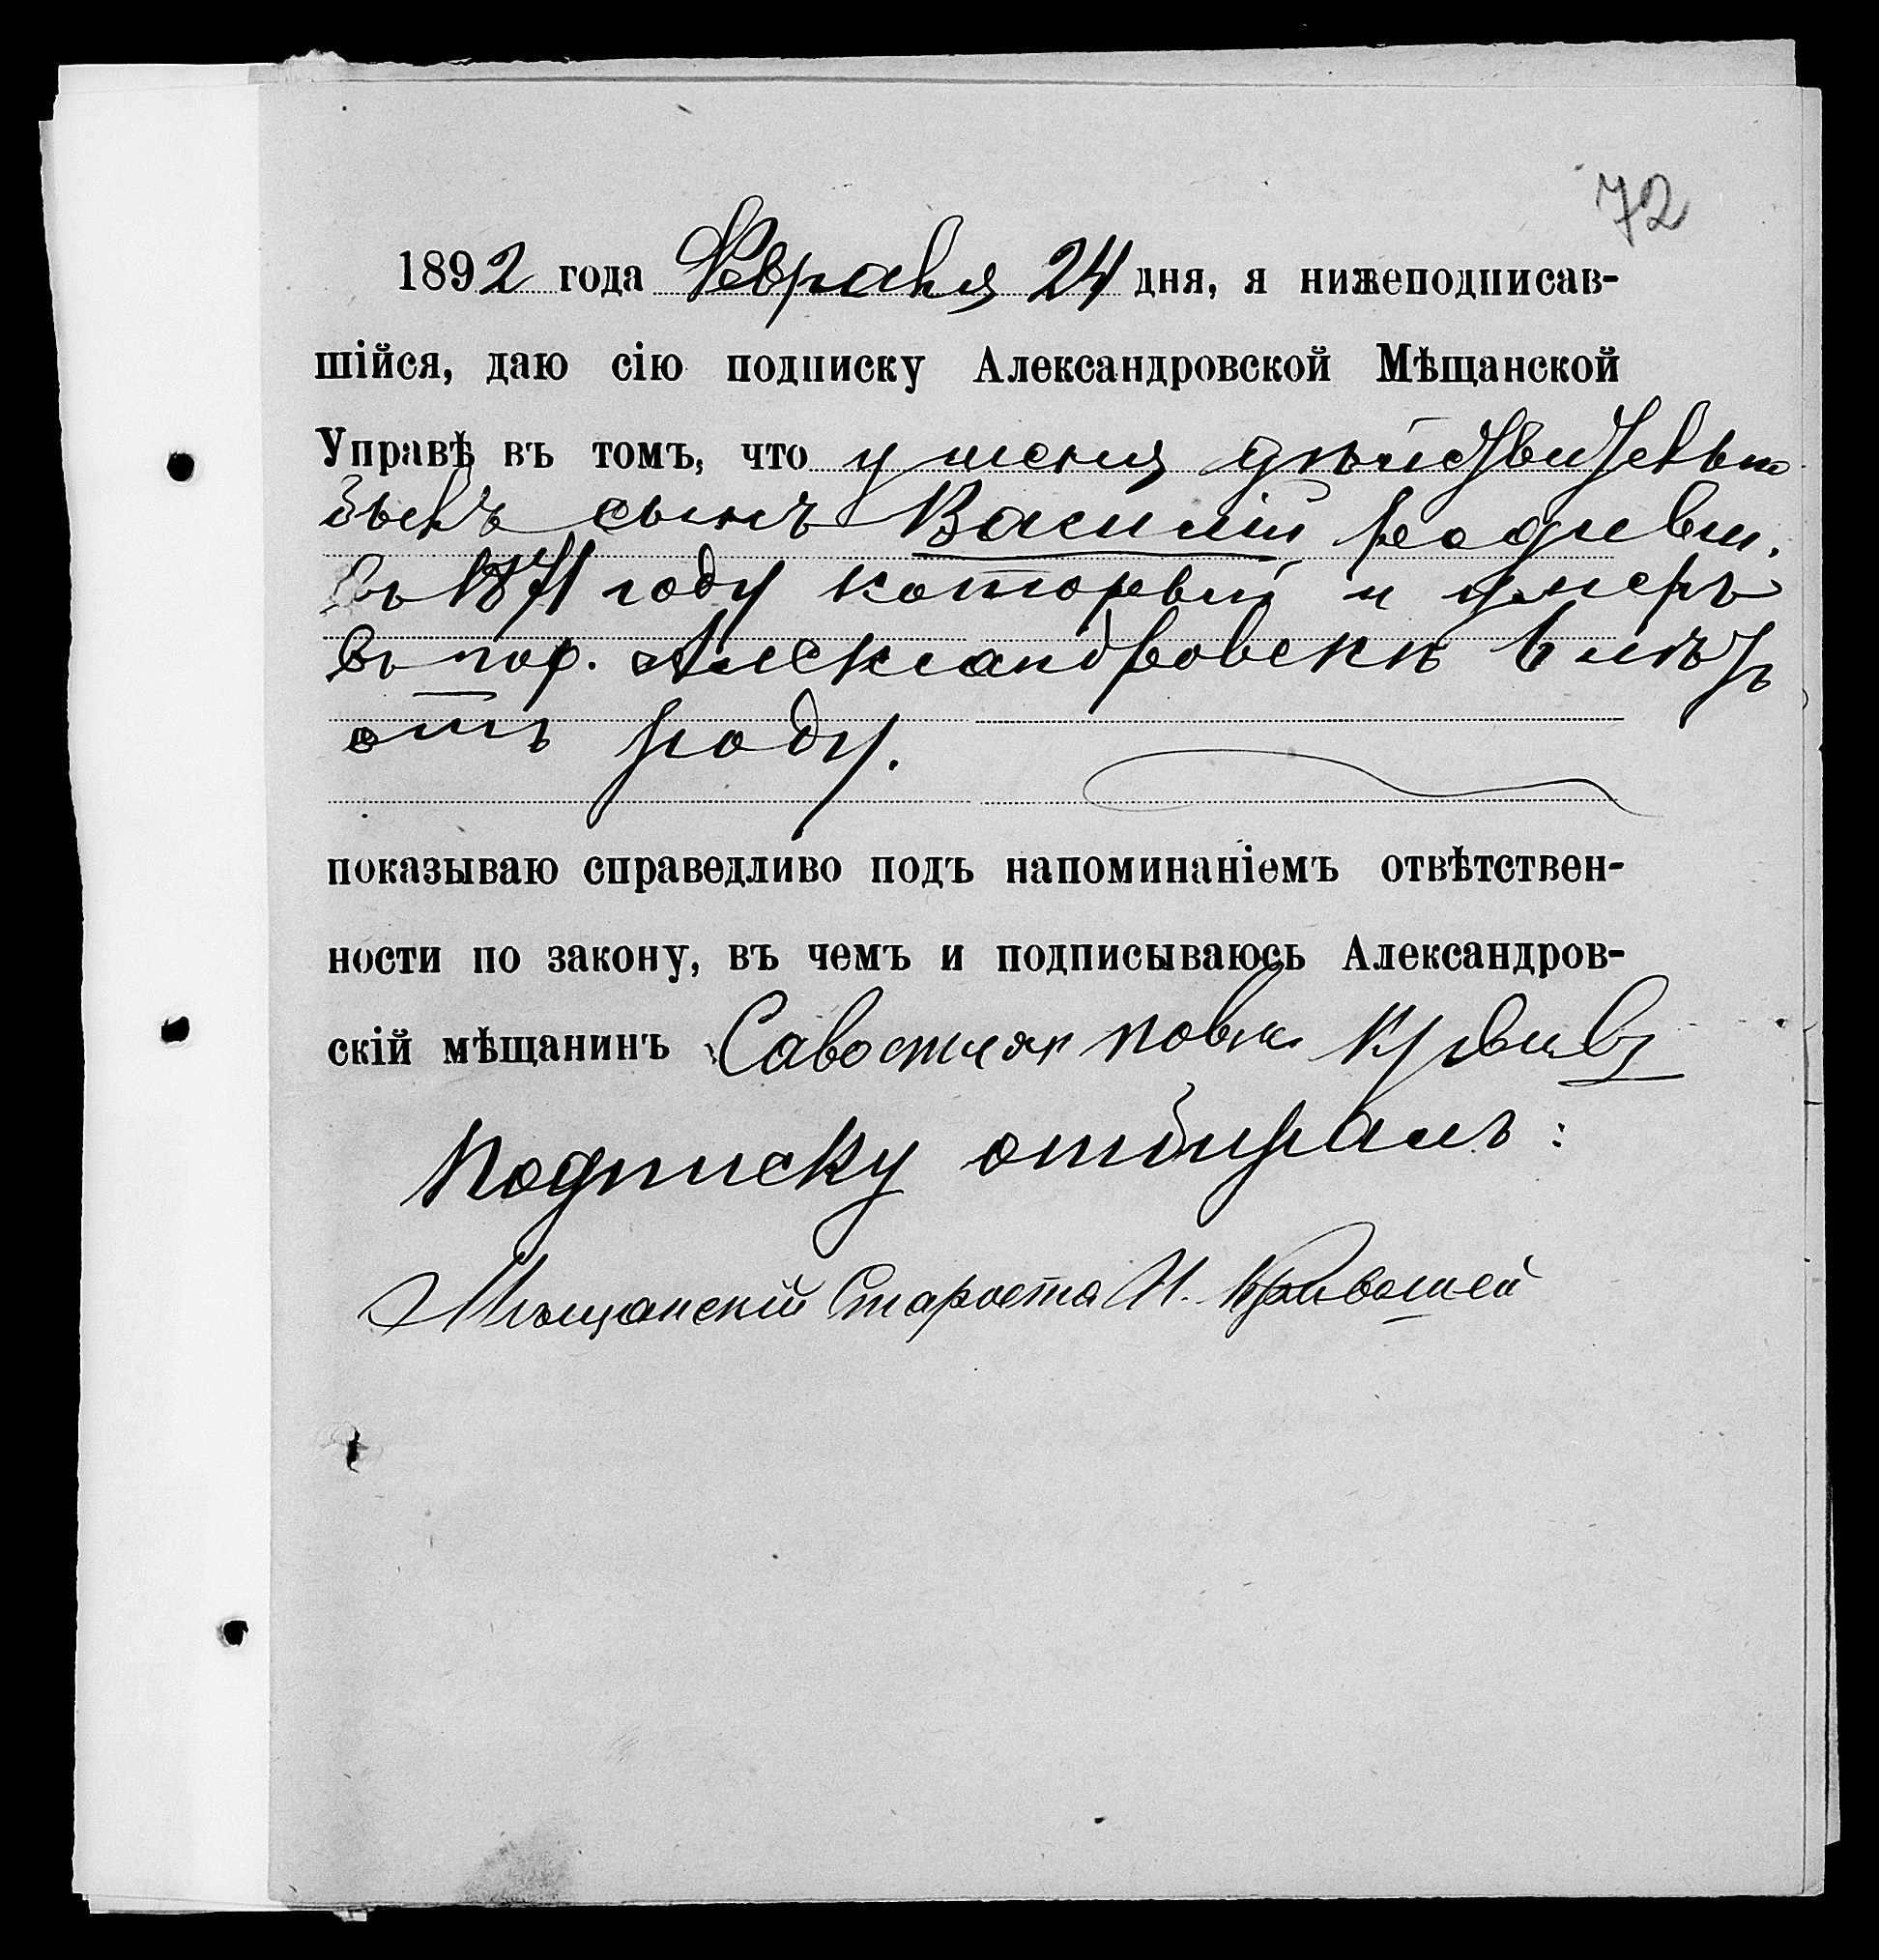 72
1892 года Февраля 24 дня, я нижеподписав-
шійся, даю сію подписку Александровской Мѣщанской
Управѣ въ томъ, что у меня дѣйствительно
былъ сынъ Василій родивш.
въ 1871 году который и умеръ
въ гор. Александровскѣ 6 лѣтъ
отъ роду.
показываю справедливо подъ напоминаніемъ отвѣтствен-
ности по закону, въ чемъ и подписываюсь Александров-
скій мѣщанинъ
Подписку отбиралъ:
Мѣщанскій Староста И. Кривошей